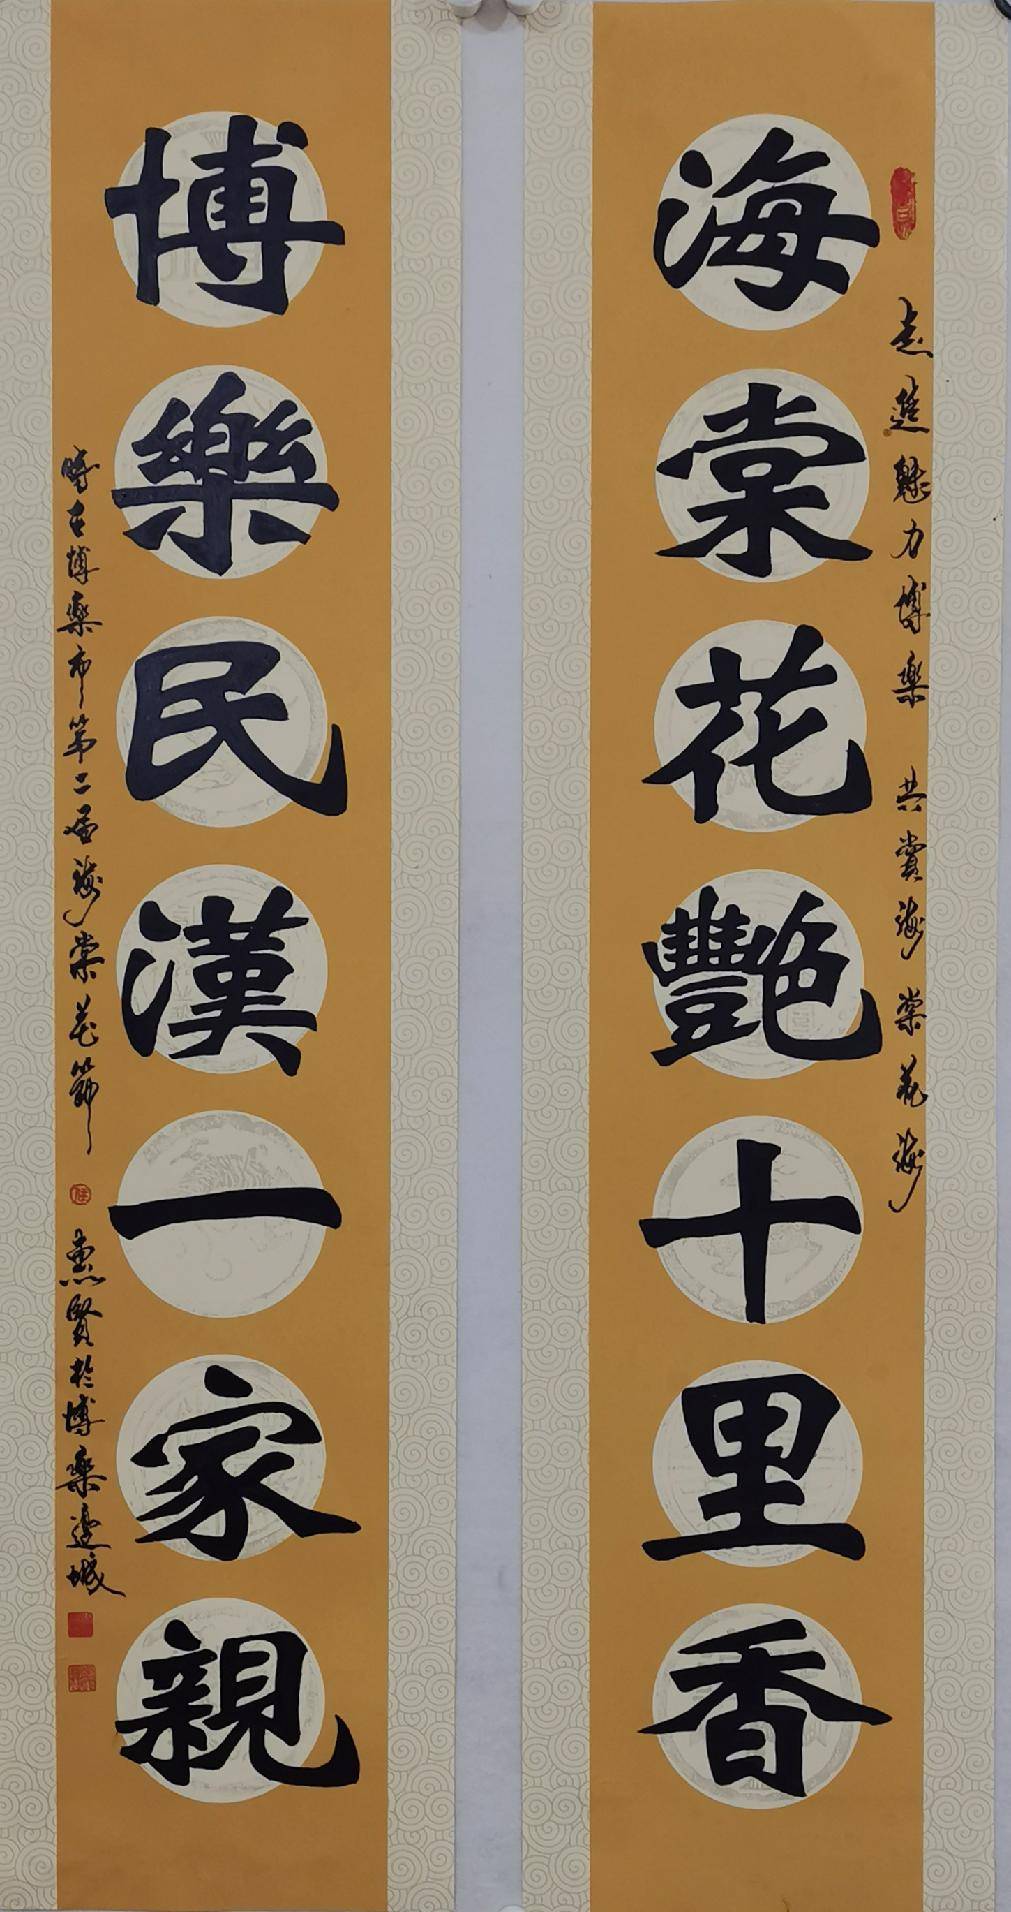 海棠花艷十里香
走進魅力博樂 共賞海棠花海
博樂民漢一家親
時在博樂市第二屆海棠花節
惠賢於博樂邊城